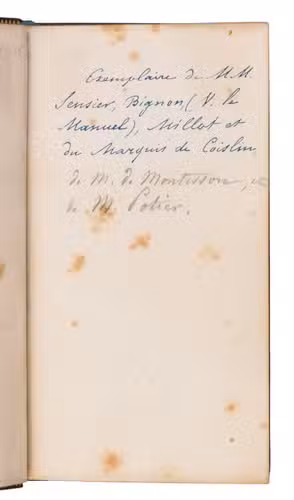 Exemplaire de M.M.
Sensier, Bignon (V. le
Manuel), Millot et
du Marquis de Coislin,
de M. de Montesson, et
de M. Potier.